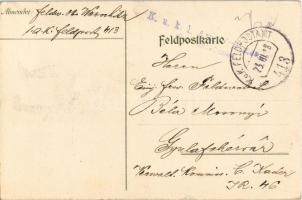 Absender: Feldw. N. Warnház
k.u.k. Feldpost 413
K. u. k.
Feldpostkarte
K.u.K. FELDPOSTAMT
413
Herrn
Einj. frw. Feldwebel
Béla Morvnyi
Gyulafehérvár
Verwalt. Komm. C. Kader
IR. 46